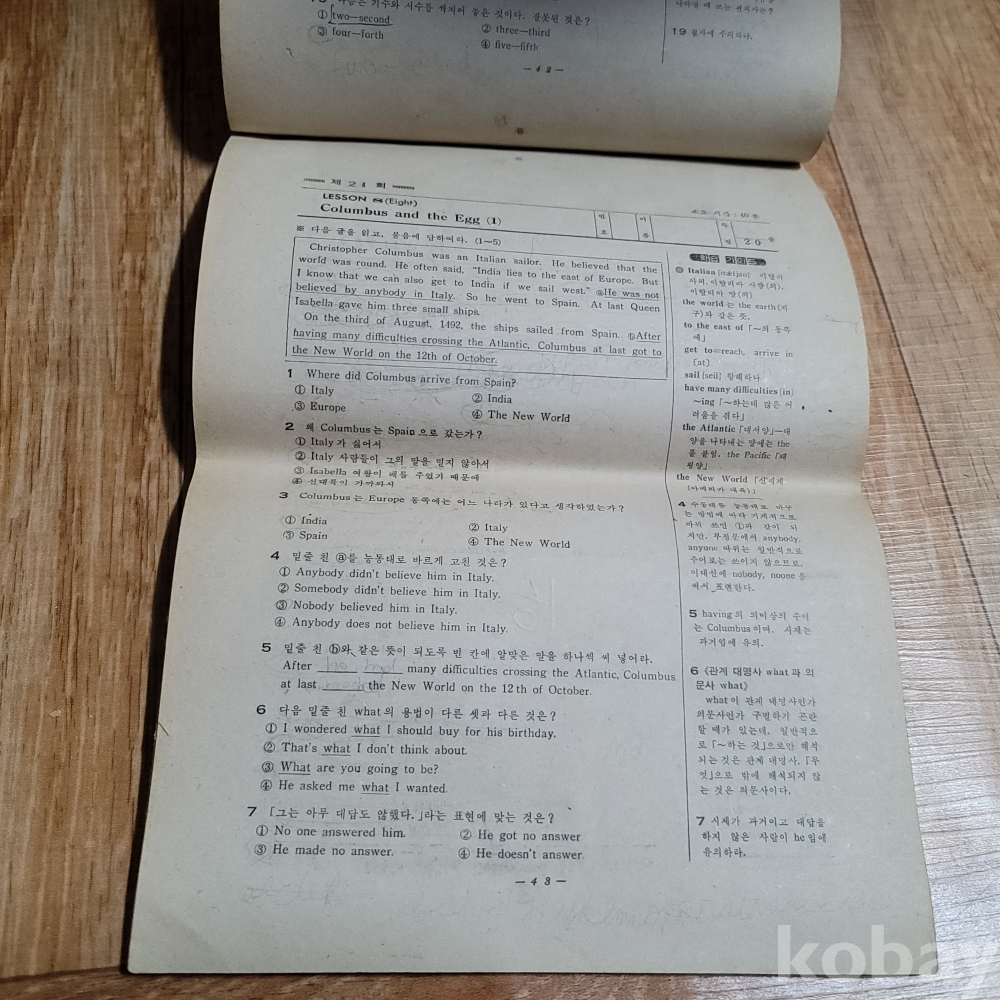 다음은 기수와 서수를 짝지어 놓은 것이다. 잘못된 것은?
① two—second ② three—third
③ four—forth ④ five—fifth
— 4 2 —
나타낼 때 쓰는 전치사는?
19 철자에 주의하라.
제 21 회
LESSON 8 (Eight)
Columbus and the Egg (1)
번호 이름 20
※ 다음 글을 읽고, 물음에 답하여라. (1~5)
Christopher Columbus was an Italian sailor. He believed that the
world was round. He often said, "India lies to the east of Europe. But
I know that we can also get to India if we sail west." ⓐHe was not
believed by anybody in Italy. So he went to Spain. At last Queen
Isabella gave him three small ships.
On the third of August, 1492, the ships sailed from Spain. ⓑAfter
having many difficulties crossing the Atlantic, Columbus at last got to
the New World on the 12th of October.
1 Where did Columbus arrive from Spain?
① Italy ② India
③ Europe ④ The New World
2 왜 Columbus는 Spain으로 갔는가?
① Italy가 싫어서
② Italy 사람들이 그의 말을 믿지 않아서
③ Isabella 여왕이 배를 주었기 때문에
④ 신대륙이 가까와서
3 Columbus는 Europe 동쪽에는 어느 나라가 있다고 생각하였는가?
① India ② Italy
③ Spain ④ The New World
4 밑줄 친 ⓐ를 능동태로 바르게 고친 것은?
① Anybody didn't believe him in Italy.
② Somebody didn't believe him in Italy.
③ Nobody believed him in Italy.
④ Anybody does not believe him in Italy.
5 밑줄 친 ⓑ와 같은 뜻이 되도록 빈 칸에 알맞은 말을 하나씩 써 넣어라.
After he had many difficulties crossing the Atlantic, Columbus
at last reach the New World on the 12th of October.
6 다음 밑줄 친 what의 용법이 다른 셋과 다른 것은?
① I wondered what I should buy for his birthday.
② That's what I don't think about.
③ What are you going to be?
④ He asked me what I wanted.
7 「그는 아무 대답도 않했다.」라는 표현에 맞는 것은?
① No one answered him. ② He got no answer
③ He made no answer. ④ He doesn't answer
— 4 3 —
학습 가이드
Italian [itǽljən] 이탈리
아의, 이탈리아 사람(의),
이탈리아 말(의)
the world는 the earth(지
구)와 같은 뜻.
to the east of 「~의 동쪽
에」
get to=reach, arrive in
[at]
sail [seil] 항해하다
have many difficulties (in)
~ing 「~하는데 많은 어
려움을 겪다」
the Atlantic 「대서양」—대
양을 나타내는 말에는 the
를 붙임. the Pacific 「태
평양」
the New World 「신세계
(아메리카 대륙)」
4 수동태를 능동태로 바꾸
는 방법에 따라 기계적으로
바꿔 쓰면 ①과 같이 되
지만, 부정문에서 anybody,
anyone 따위는 일반적으로
주어로는 쓰이지 않으므로,
이대신에 nobody, noone을
써서 표현한다.
5 having의 의미상의 주어
는 Columbus이며, 시제는
과거임에 유의.
6 《관계 대명사 what과 의
문사 what》
what이 관계 대명사인가
의문사인가 구별하기 곤란
할 때가 있는데, 일반적으
로 「~하는 것」으로만 해석
되는 것은 관계 대명사, 「무
엇」으로 밖에 해석되지 않
는 것은 의문사이다.
7 시제가 과거이고 대답을
하지 않은 사람이 he임에
유의하라.
kobay